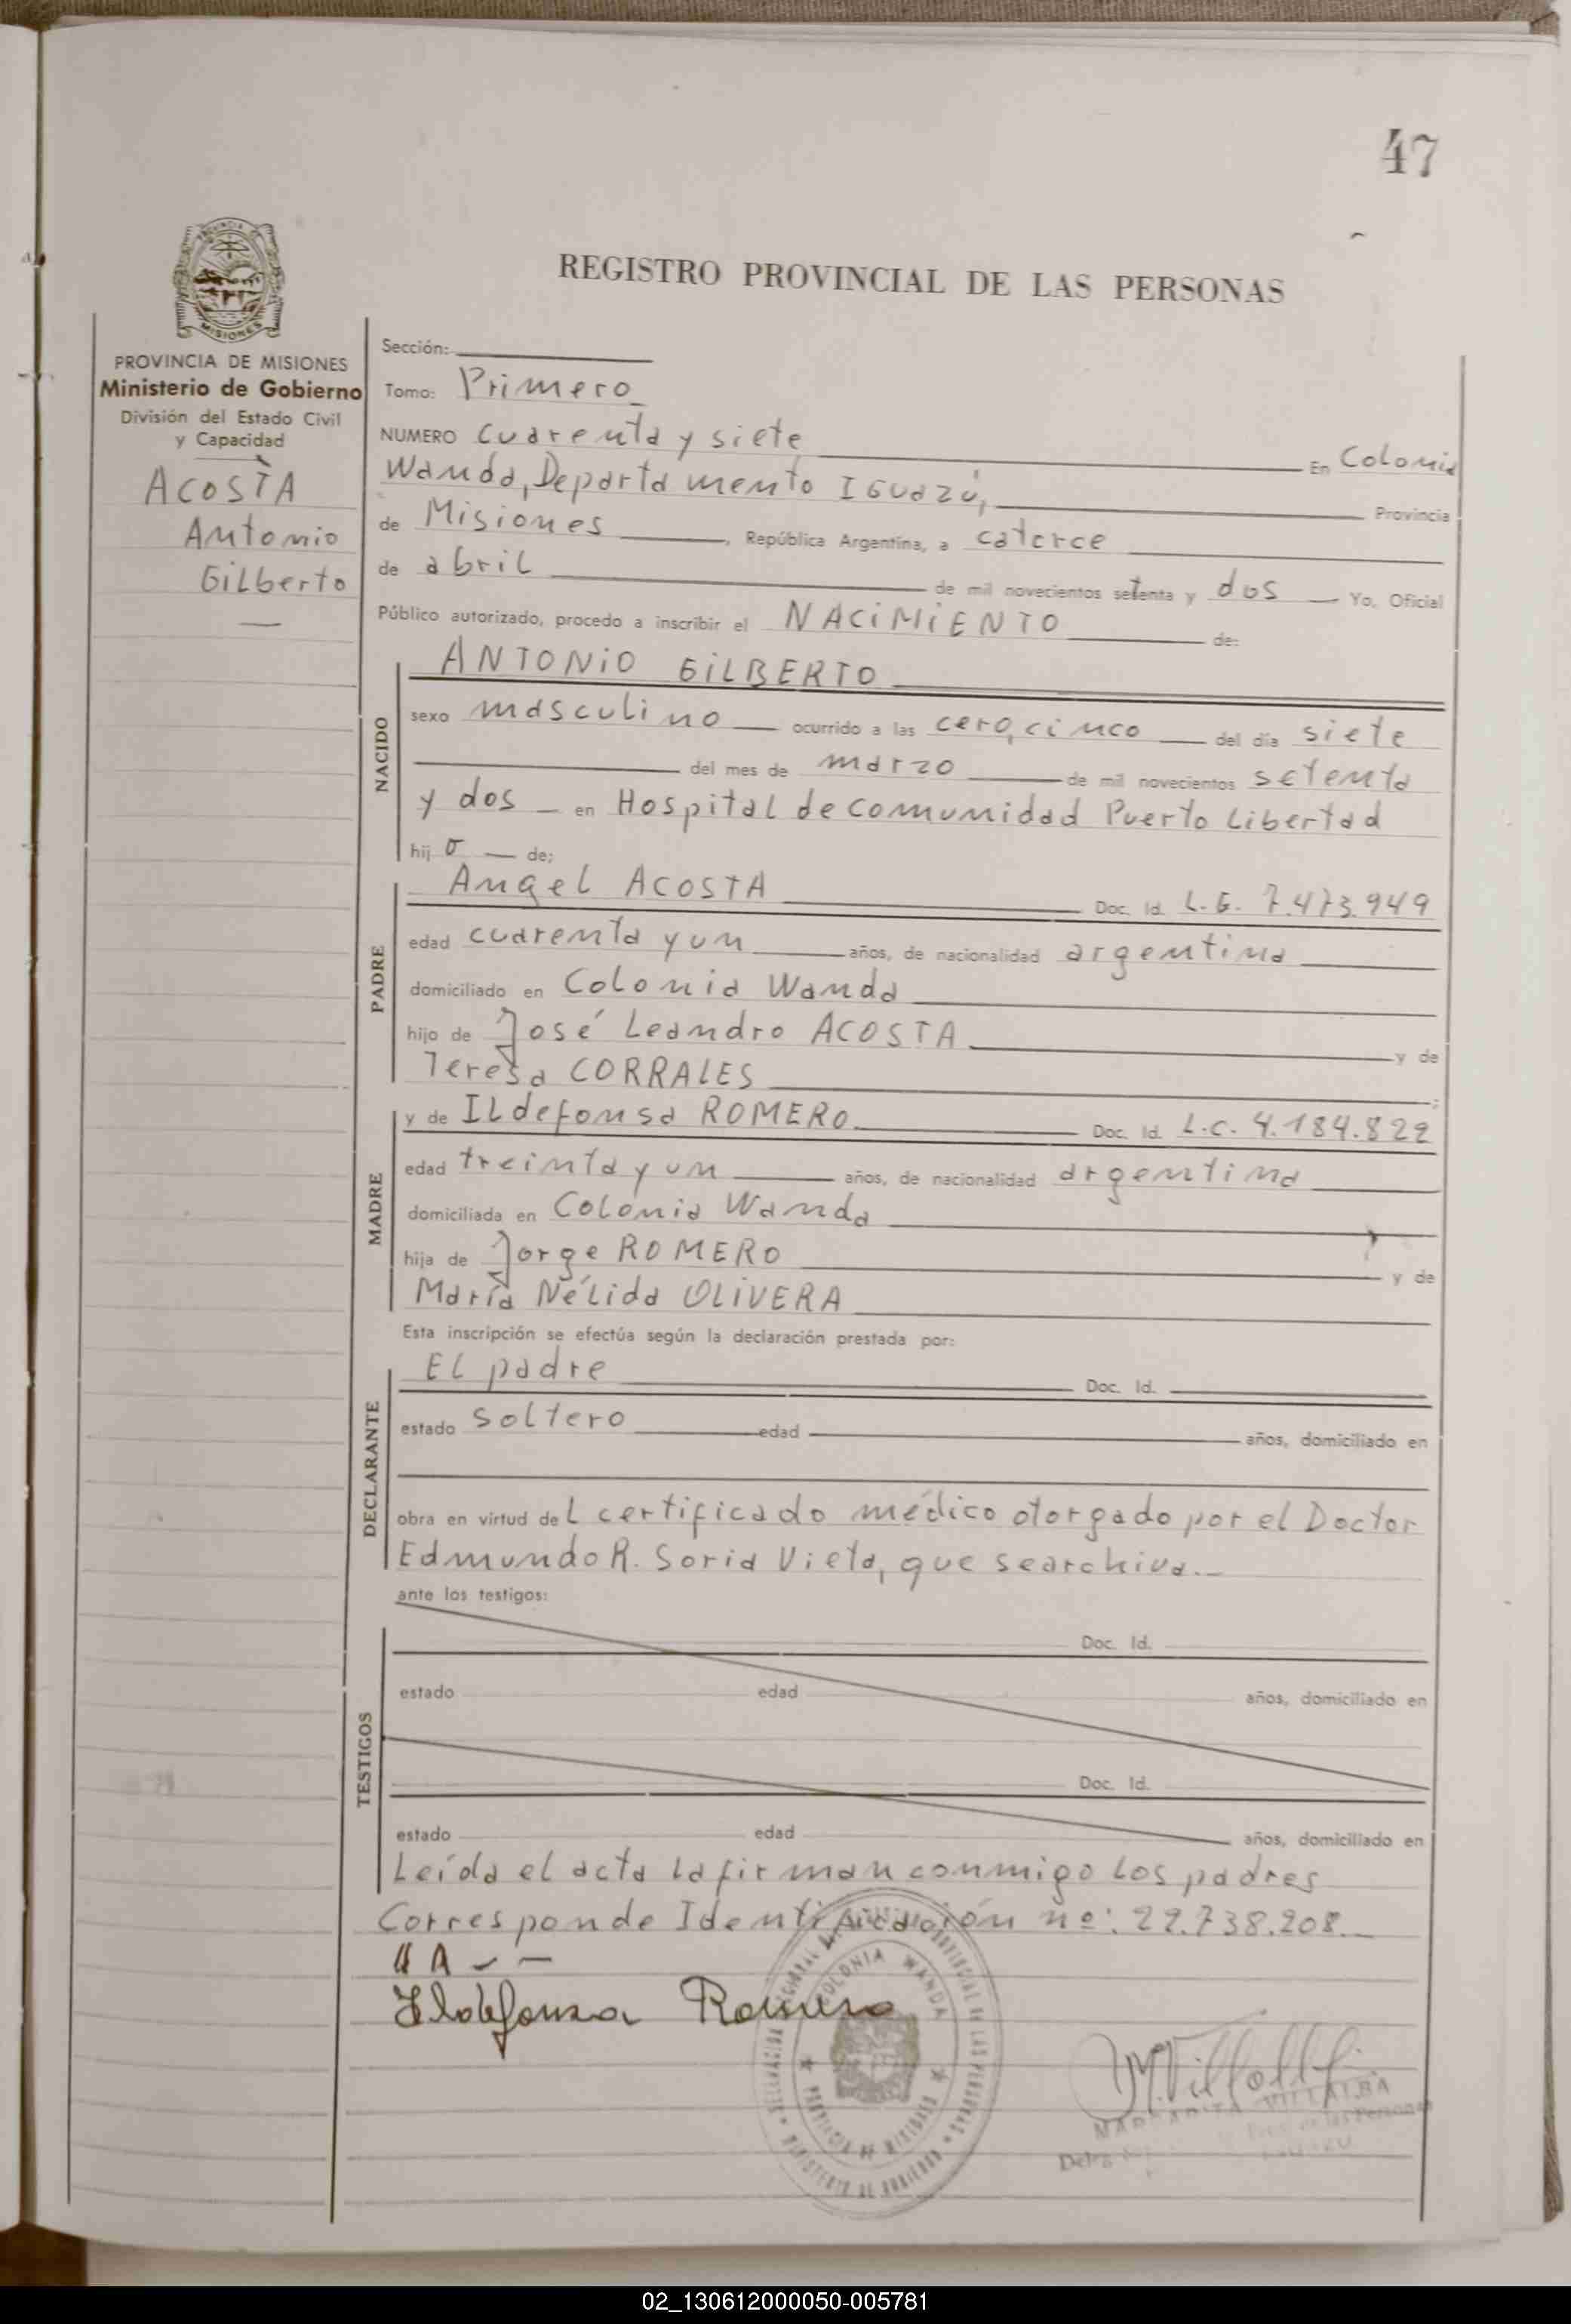 47
REGISTRO PROVINCIAL DE LAS PERSONAS
PROVINCIA
MISIONES
PROVINCIA DE MISIONES
Ministerio de Gobierno
División del Estado Civil
y Capacidad
ACOSTA
Antonio
Gilberto
Sección:
Tomo: Primero
NUMERO cuarenta y siete En Colonia
Wanda, Departamento IGUAZÚ, Provincia
de Misiones, República Argentina, a catorce
de abril de mil novecientos setenta y dos Yo, Oficial
Público autorizado, procedo a inscribir el NACIMIENTO de:
NACIDO
ANTONIO GILBERTO
sexo masculino ocurrido a las cero, cinco del día siete
del mes de marzo de mil novecientos setenta
y dos en Hospital de comunidad Puerto Libertad
hij o de;
PADRE
Angel ACOSTA Doc. Id. L.E. 7.473.949
edad cuarenta y un años, de nacionalidad argentina
domiciliado en Colonia Wanda
hijo de José Leandro ACOSTA y de
Teresa CORRALES ;
MADRE
y de ILdefonsa ROMERO Doc. Id. L.C. 4.184.822
edad treinta y un años, de nacionalidad argentina
domiciliada en Colonia Wanda
hija de Jorge ROMERO y de
María Nélida OLIVERA
Esta inscripción se efectúa según la declaración prestada por:
DECLARANTE
El padre Doc. Id.
estado soltero edad años, domiciliado en
obra en virtud del certificado médico otorgado por el Doctor
Edmundo R. Soria Vieta, que se archiva.-
ante los testigos:
TESTIGOS
Doc. Id.
estado edad años, domiciliado en
Doc. Id.
estado edad años, domiciliado en
Leída el acta la firman conmigo los padres
Corresponde Identificación nº: 22.738.208.
Ildefonsa Romero
COLONIA WANDA
PROVINCIA DE MISIONES
MARGARITA VILLALBA
02_130612000050-005781